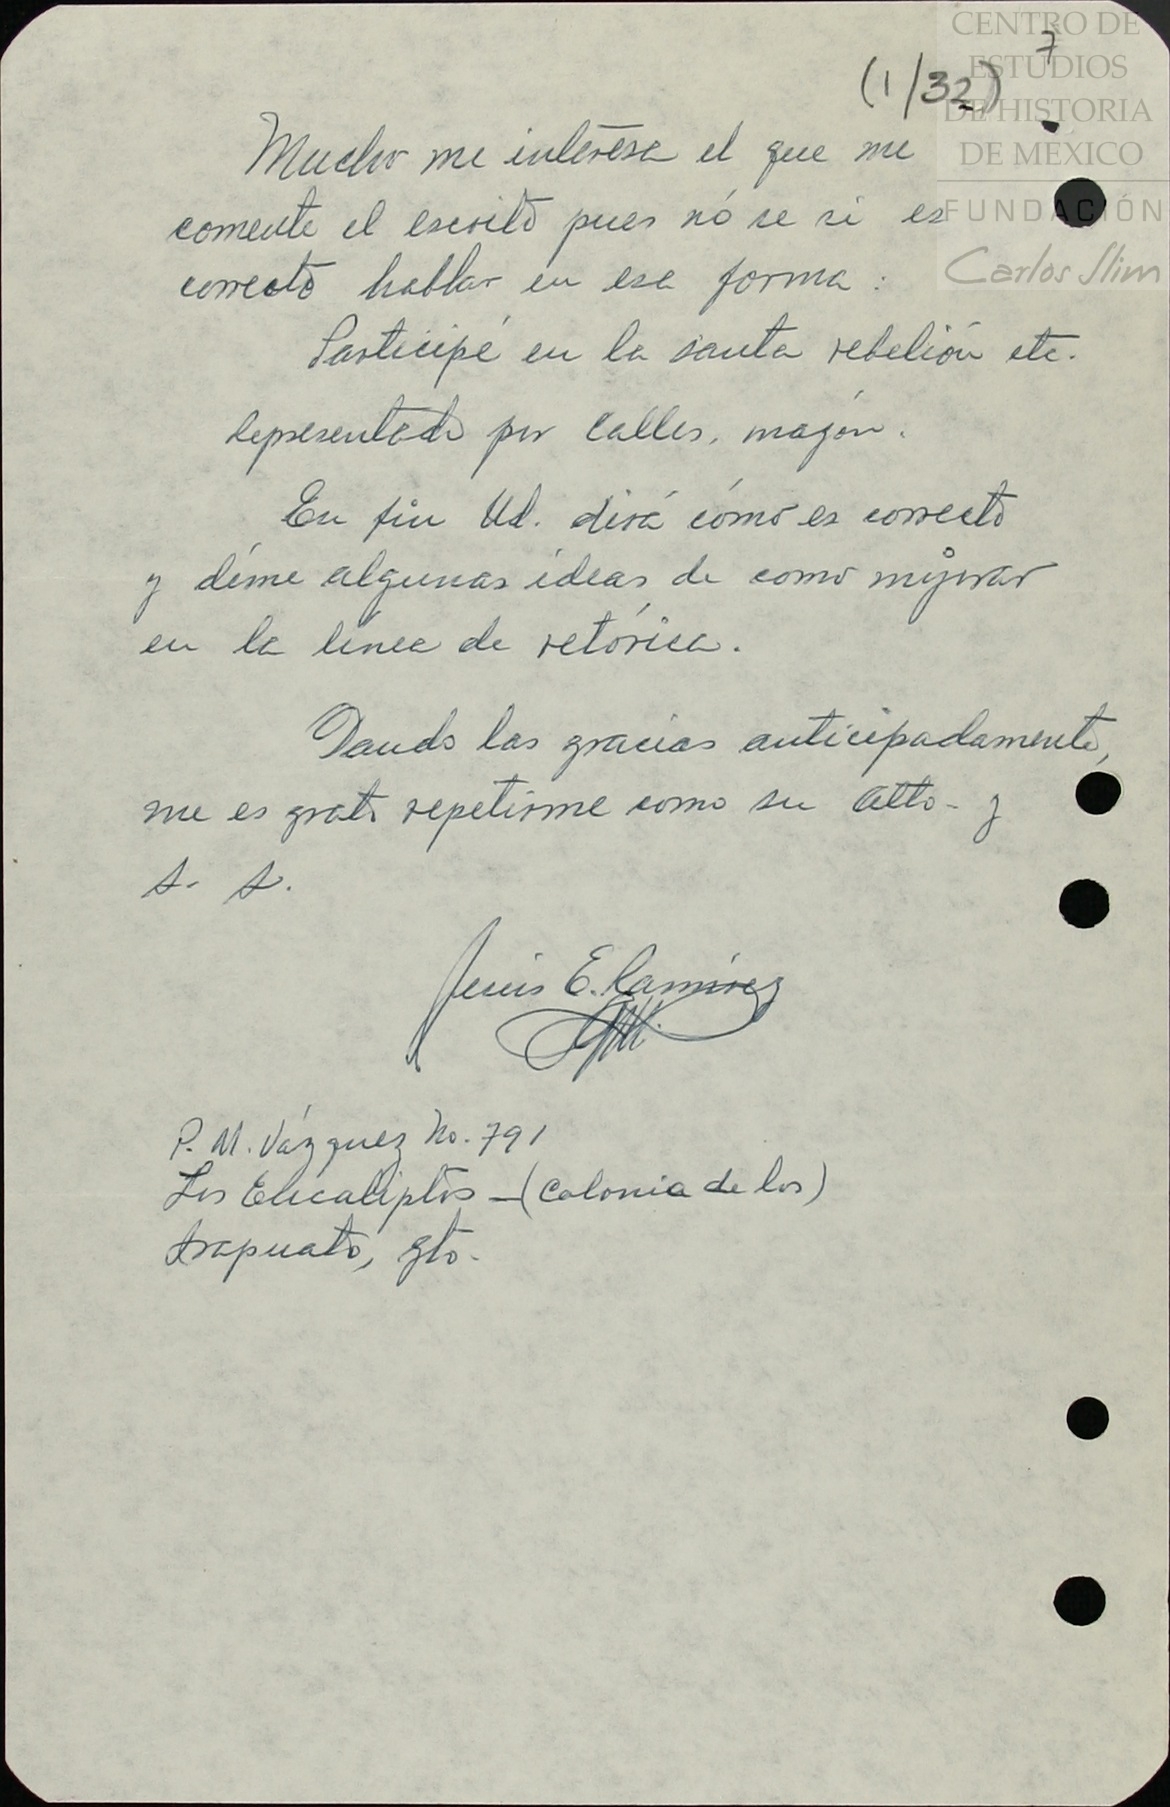 CENTRO DE
ESTUDIOS
DE HISTORIA
DE MÉXICO
FUNDACIÓN
Carlos Slim
7
(1/32)
Mucho me interesa el que me
comente el escrito pues nó se si es
correcto hablar en esa forma:
Participé en la santa rebelión etc.
representado por Calles, magón.
En fin Ud. dirá cómo es correcto
y déme algunas ideas de como mejorar
en la línea de retórica.
Dando las gracias anticipadamente,
me es grato repetirme como su atto- y
s. s.
Jesús E. Ramírez
P. M. Vázquez No. 791
Los Eucaliptos -(Colonia de los)
Irapuato, Gto.